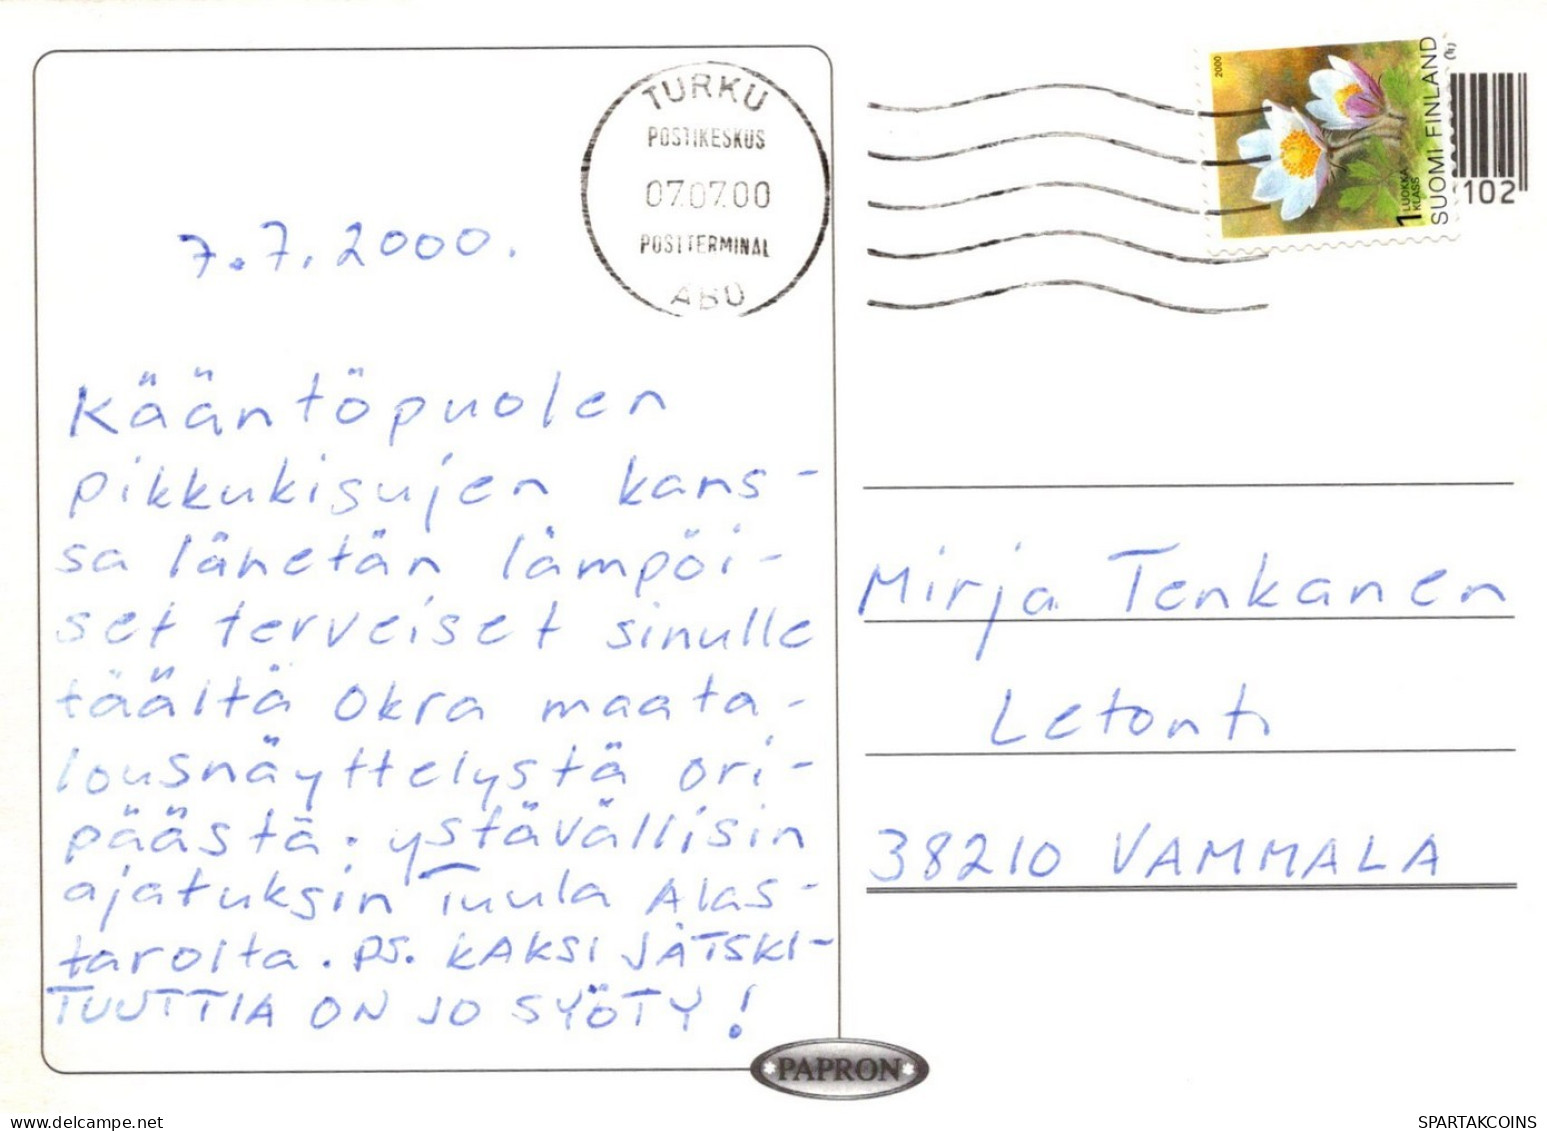 TURKU
POSTIKESKUS
07.07.00
POSTTERMINAL
ÅBO
2000
1 LUOKKA
KLASS
SUOMI FINLAND
102
7.7.2000.
Kääntöpuolen
pikkukisujen kans-
sa lähetän lämpöi-
set terveiset sinulle
täältä Okra maata-
lousnäyttelystä ori-
päästä. ystävällisin
ajatuksin Tuula Alas-
tarolta. PS. KAKSI JÄTSKI-
TUUTTIA ON JO SYÖTY!
Mirja Tenkanen
Letonti
38210 VAMMALA
PAPRON
SPARTAKCOINS